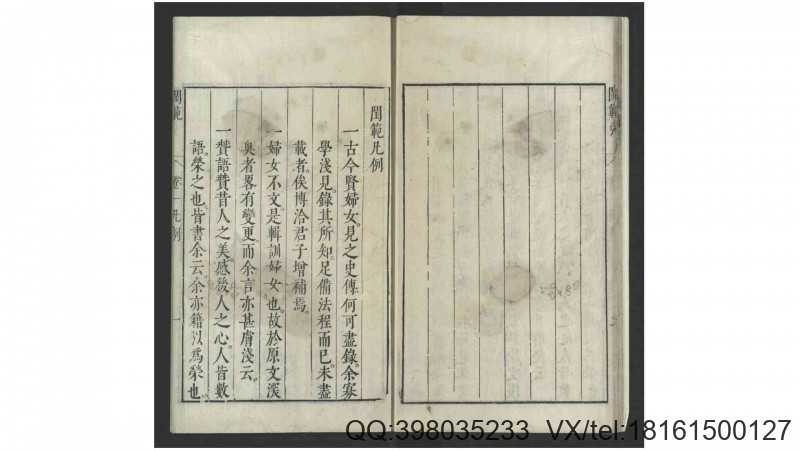 閨範凡例
一古今賢婦女見之史傳何可盡錄余寡
學淺見錄其所知足備法程而已未盡
載者俟博洽君子增補焉
一婦女不文是輯訓婦女也故於原文深
奥者畧有變更而余言亦甚膚淺云
一贊語贊昔人之美感後人之心人皆數
語榮之也皆書余云余亦籍以爲榮也
閨範
卷一凡例
一
QQ:398035233 VX/tel:18161500127